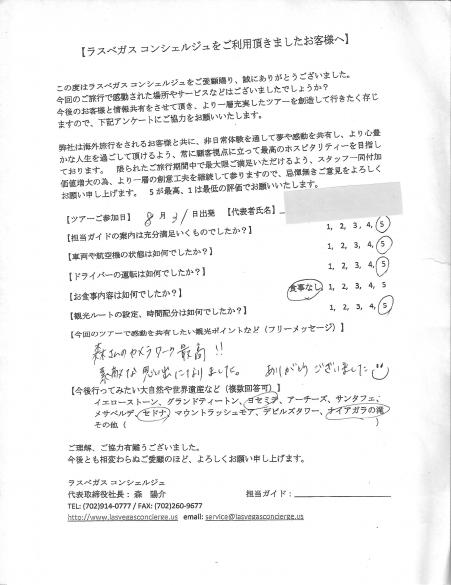 【ラスベガス コンシェルジュをご利用頂きましたお客様へ】
この度はラスベガス コンシェルジュをご愛顧賜り、誠にありがとうございました。
今回のご旅行で感動された場所やサービスなどはございましたでしょうか?
今後のお客様と情報共有をさせて頂き、より一層充実したツアーを創造して行きたく存じ
ますので、下記アンケートにご協力をお願いいたします。
弊社は海外旅行をされるお客様と共に、非日常体験を通して夢や感動を共有し、より心豊
かな人生を過ごして頂けるよう、常に顧客視点に立って最高のホスピタリティーを目指し
ております。 限られたご旅行期間中で最大限ご満足いただけるよう、スタッフ一同付加
価値増大の為、より一層の創意工夫を継続して参りますので、忌憚無きご意見をよろしく
お願い申し上げます。 5が最高、1は最低の評価でお願いいたします。
【ツアーご参加日】 8 月 31 日出発 【代表者氏名】
【担当ガイドの案内は充分満足いくものでしたか?】 1, 2, 3, 4, 5
【車両や航空機の状態は如何でしたか?】 1, 2, 3, 4, 5
【ドライバーの運転は如何でしたか?】 1, 2, 3, 4, 5
【お食事内容は如何でしたか?】 食事なし 1, 2, 3, 4, 5
【観光ルートの設定、時間配分は如何でしたか?】 1, 2, 3, 4, 5
【今回のツアーで感動を共有したい観光ポイントなど(フリーメッセージ)】
森さんのカメラワーク最高!!
素敵な思い出になりました。 ありがとうございました
【今後行ってみたい大自然や世界遺産など(複数回答可)】
イエローストーン、グランドティートン、ヨセミテ、アーチーズ、サンタフェ、
メサベルデ、セドナ、マウントラッシュモア、デビルズタワー、ナイアガラの滝
その他(
ご理解、ご協力有難うございました。
今後とも相変わらぬご愛顧のほど、よろしくお願い申し上げます。
ラスベガス コンシェルジュ
代表取締役社長: 森 陽介 担当ガイド:
TEL: (702)914-0777 / FAX: (702)260-9677
http://www.lasvegasconcierge.us email: service@lasvegasconcierge.us